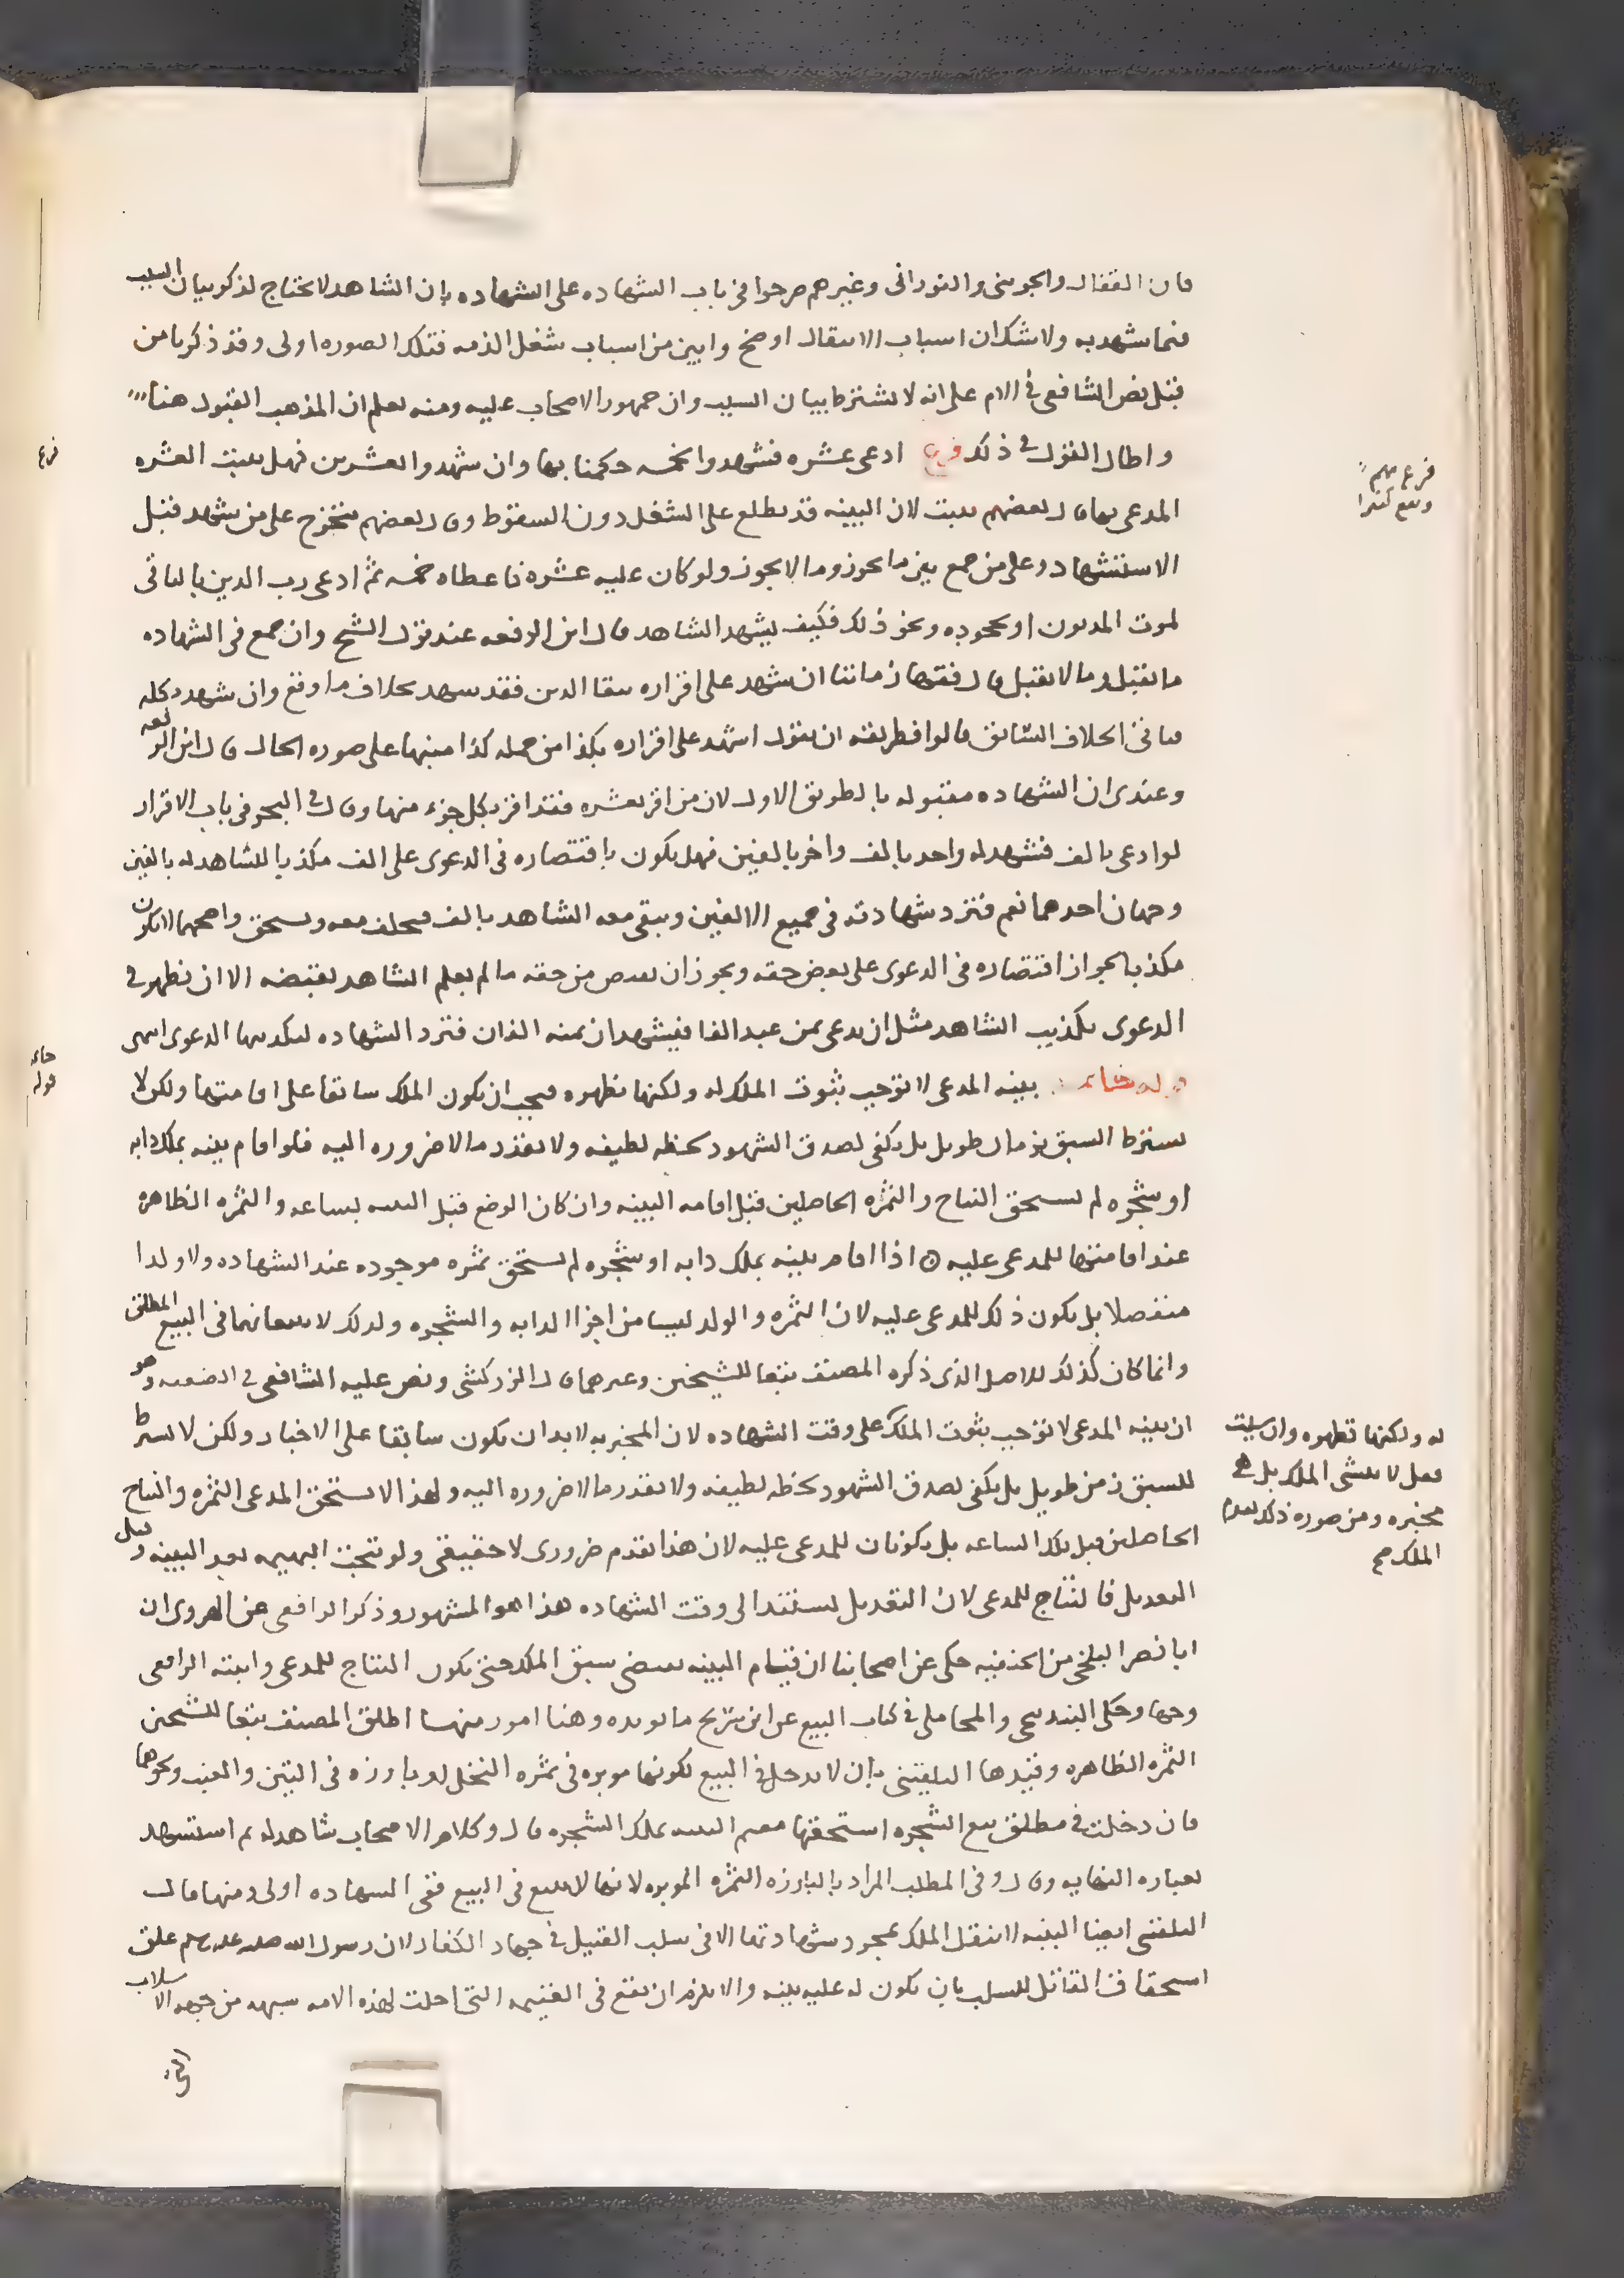 فان القفال والجويني والفوراني وغيرهم صرحوا في باب الشهاده على الشهاده بان الشاهد لا يحتاج لذكر بيان السبب
فيما شهد به ولا شك ان اسباب الانتقال اوضح وابين من اسباب شغل الذمه فتلك الصوره اولى وقد ذكرنا من
قبل نص الشافعي في الام على انه لا يشترط بيان السبب وان جمهور الاصحاب عليه ومنه يعلم ان المذهب القبول هنا
واطال القول في ذلك فرع ادعى عشره فشهدوا بخمسه حكمنا بها وان شهدوا بعشرين فهل يثبت العشره
المدعى بها قال بعضهم يثبت لان البينه قد تطلع على الشغل دون السقوط وقال بعضهم يتخرج على من شهد قبل
الاستشهاد وعلى من جمع بين ما يجوز وما لا يجوز ولو كان عليه عشره فاعطاه خمسه ثم ادعى رب الدين بالباقي
لموت المديون او جحوده ونحو ذلك فكيف يشهد الشاهد قال ابن الرفعه عند قول الشيخ وان جمع في الشهاده
ما يقبل وما لا يقبل قال فقها زماننا ان شهد على اقراره ببقا الدين فقد شهد بخلاف ما وقع وان شهد بكله
فياتي الخلاف السابق قالوا فطريقه ان يقول اشهد على اقراره بكذا من جمله كذا منبها على صوره الحال قال ابن الرفعه
وعندي ان الشهاده مقبوله بالطريق الاول لان من اقر بعشره فقد اقر بكل جزء منها وقال في البحر في باب الاقرار
لو ادعى بالف فشهد له واحد بالف واخر بالفين فهل يكون باقتصاره في الدعوى على الف مكذبا للشاهد له بالفين
وجهان احدهما نعم فترد شهادته في جميع الالفين ويبقى معه الشاهد بالف فيحلف معه ويستحق واصحهما لا يكون
مكذبا لجواز اقتصاره في الدعوى على بعض حقه ويجوز ان يقبض من حقه ما لم يعلم الشاهد بقبضه الا ان يظهر في
الدعوى تكذيب الشاهد مثل ان يدعي ثمن عبد الفا فيشهد ان ثمنه الفان فترد الشهاده لتكذيبها الدعوى انتهى
قوله خاتمه بينه المدعي لا توجب ثبوت الملك له ولكنها تظهره فيجب ان يكون الملك سابقا على اقامتها ولكن لا
يشترط السبق بزمان طويل بل يكفي لصدق الشهود لحظه لطيفه ولا يقدر ما لا ضروره اليه فلو اقام بينه بملك دابه
او شجره لم يستحق النتاج والثمره الحاصلين قبل اقامه البينه وان كان الوضع قبل البينه بساعه والثمره الظاهره
عند اقامتها للمدعى عليه اذا اقام بينه بملك دابه او شجره لم يستحق ثمره موجوده عند الشهاده ولا ولدا
منفصلا بل يكون ذلك للمدعى عليه لان الثمره والولد ليسا من اجزا الدابه والشجره ولذلك لا يتبعانهما في البيع المطلق
وانما كان كذلك للاصل الذي ذكره المصنف تبعا للشيخين وغيرهما قال الزركشي ونص عليه الشافعي في وهو
ان بينه المدعي لا توجب ثبوت الملك على وقت الشهاده لان المخبر به لا بد ان يكون سابقا على الاخبار ولكن لا يشترط
للسبق زمن طويل بل يكفي لصدق الشهود لحظه لطيفه ولا يقدر ما لا ضروره اليه ولهذا لا يستحق المدعي الثمره والنتاج
الحاصلين قبل تلك الساعه بل يكونان للمدعى عليه لان هذا تقدم ضروري لا حقيقي ولو نتجت البهيمه بعد البينه وقبل
التعديل فالنتاج للمدعي لان التعديل يستند الى وقت الشهاده هذا هو المشهور وذكر الرافعي عن الهروي ان
ابا نصر البلخي من الحنفيه حكى عن اصحابنا ان قيام البينه يقتضي سبق الملك حتى يكون النتاج للمدعي واثبته الرافعي
وجها وحكى البندنيجي والمحاملي في كتاب البيع عن ابن سريج ما يويده وهنا امور منها اطلق المصنف تبعا للشيخين
الثمره الظاهره وقيدها البلقيني بان لا يدخل في البيع لكونها موبره في ثمره النخل او بارزه في التين والعنب ونحوهما
فان دخلت في مطلق بيع الشجره استحقها مقيم البينه بملك الشجره قال وكلام الاصحاب شاهد له ثم استشهد
بعباره النهايه وقال وفي المطلب المراد بالبارزه الثمره الموبره لانها لا تتبع في البيع ففي الشهاده اولى ومنها قال
البلقيني ايضا البينه لا تنقل الملك بمجرد شهادتها الا في سلب القتيل في جهاد الكفار لان رسول الله صلى الله عليه وسلم علق
استحقاق القاتل للسلب بان يكون له عليه بينه والا يلزم ان تقع في الغنيمه التي احلت لهذه الامه شبهه من جهه الاسلاب
فرع مهم
ويقع كثيرا
له ولكنها تظهره وان شيت
فقل لا تنشي الملك بل هي
مخبره ومن ضروره ذلك تقدم
الملك صح
فرع
خاتمه
قوله